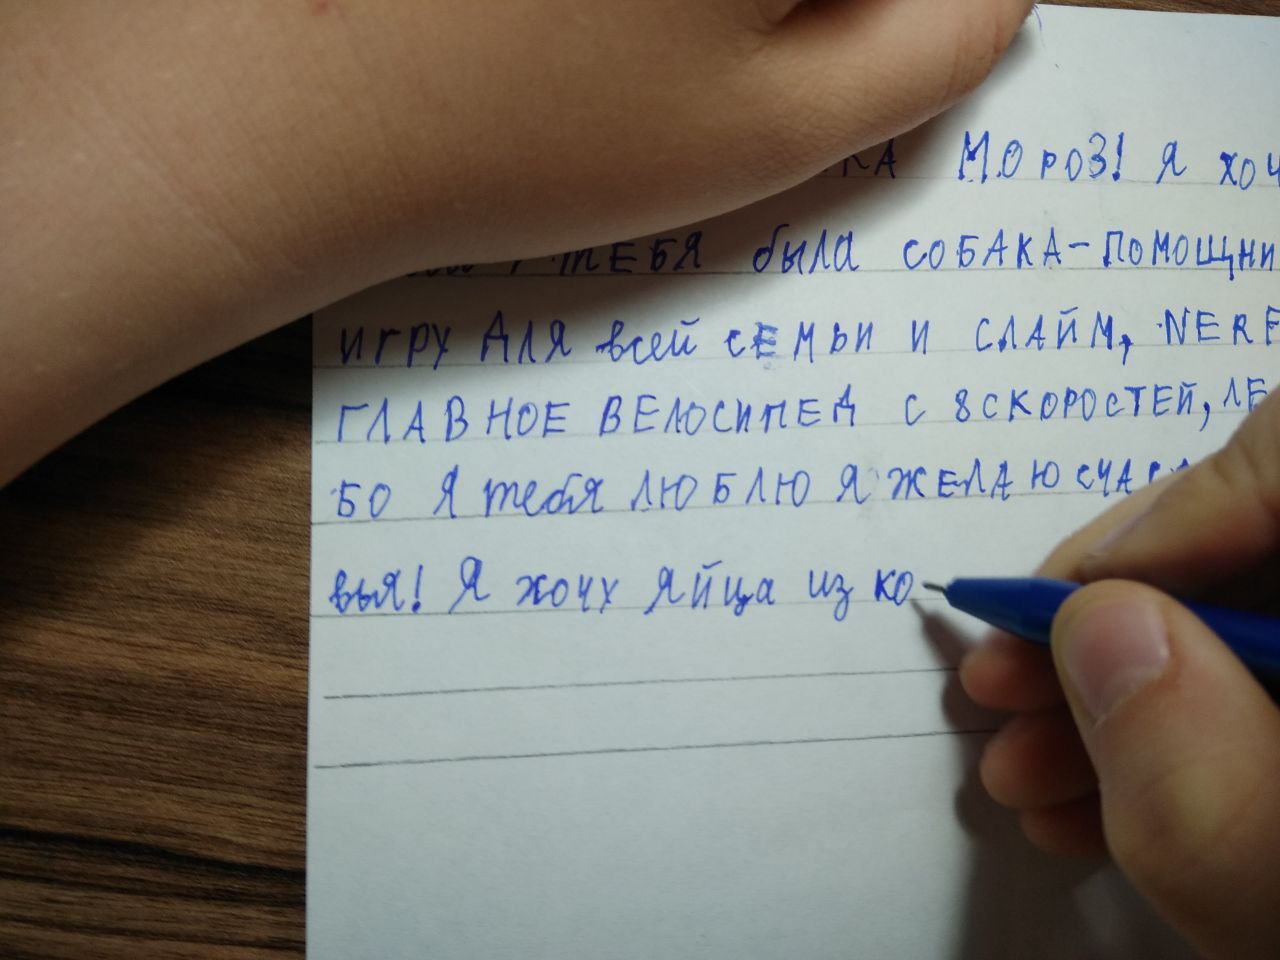 МОРОЗ! Я ХОЧ
ТЕБЯ была СОБАКА-ПОМОЩНИ
ИГРУ ДЛЯ всей СЕМЬИ И СЛАЙМ, NERF
ГЛАВНОЕ ВЕЛОСИПЕД С 8 СКОРОСТЕЙ, ЛЕ
БО Я тебя ЛЮБЛЮ Я ЖЕЛАЮ СЧАС
вья! Я хочу яйца из ко